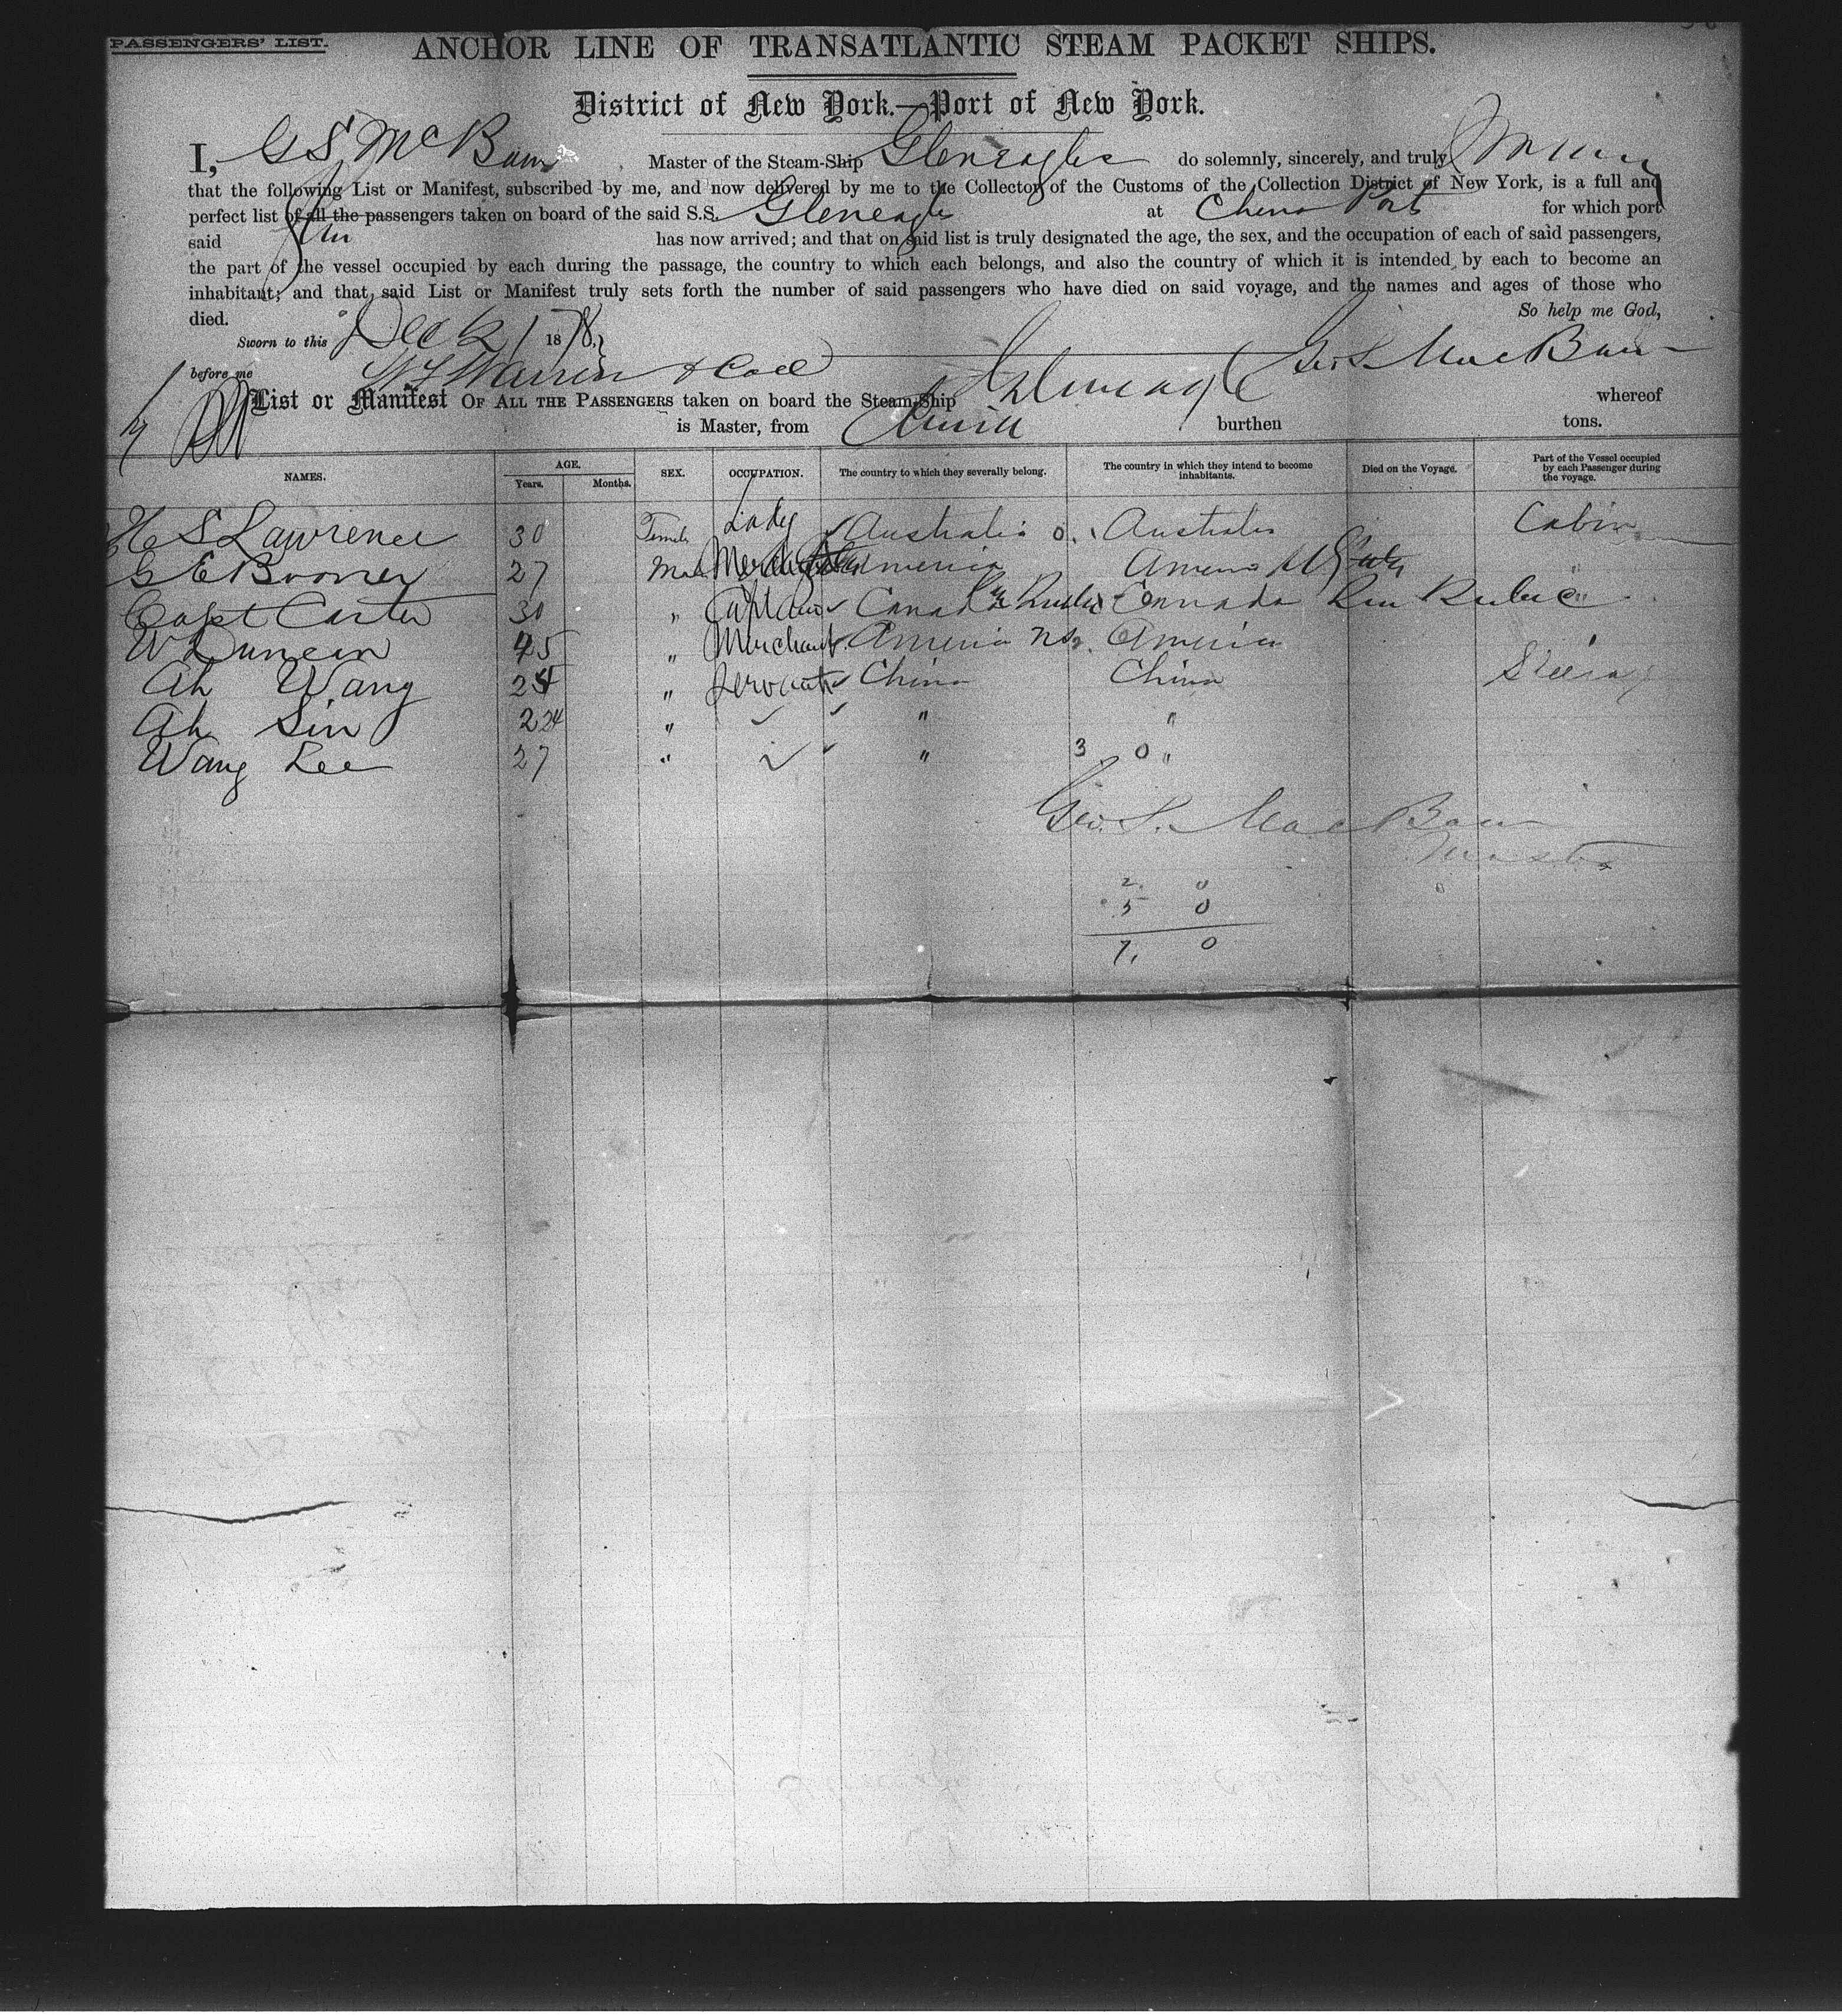 PASSENGERS' LIST.
ANCHOR LINE OF TRANSATLANTIC STEAM PACKET SHIPS.
District of New York.—Port of New York.
I, G S McBain, Master of the Steam-Ship Gleneagles do solemnly, sincerely, and truly
that the following List or Manifest, subscribed by me, and now delivered by me to the Collector of the Customs of the Collection District of New York, is a full and
perfect list of all the passengers taken on board of the said S.S. Gleneagles at China Ports for which port
said has now arrived; and that on said list is truly designated the age, the sex, and the occupation of each of said passengers,
the part of the vessel occupied by each during the passage, the country to which each belongs, and also the country of which it is intended by each to become an
inhabitant; and that said List or Manifest truly sets forth the number of said passengers who have died on said voyage, and the names and ages of those who
died. So help me God,
Sworn to this Dec 2 1878.
before me Geo. S. MacBain
List or Manifest OF ALL THE PASSENGERS taken on board the Steam-Ship Gleneagles whereof
is Master, from China burthen tons.
NAMES. AGE. Years. Months. SEX. OCCUPATION. The country to which they severally belong. The country in which they intend to become inhabitants. Died on the Voyage. Part of the Vessel occupied by each Passenger during the voyage.
H S Lawrence 30 Female Lady Australia 0. Australia Cabin
G E Booney 27 Male America America U States "
Capt Carter 30 " Captain Canada Canada "
W Duncan 45 " Merchant America America "
Ah Wang 25 " Servant China China Steerage
Ah Sin 24 " " "
Wang Lee 27 " " 3 0 "
Geo. S. MacBain
Master
2. 0
5 0
7. 0